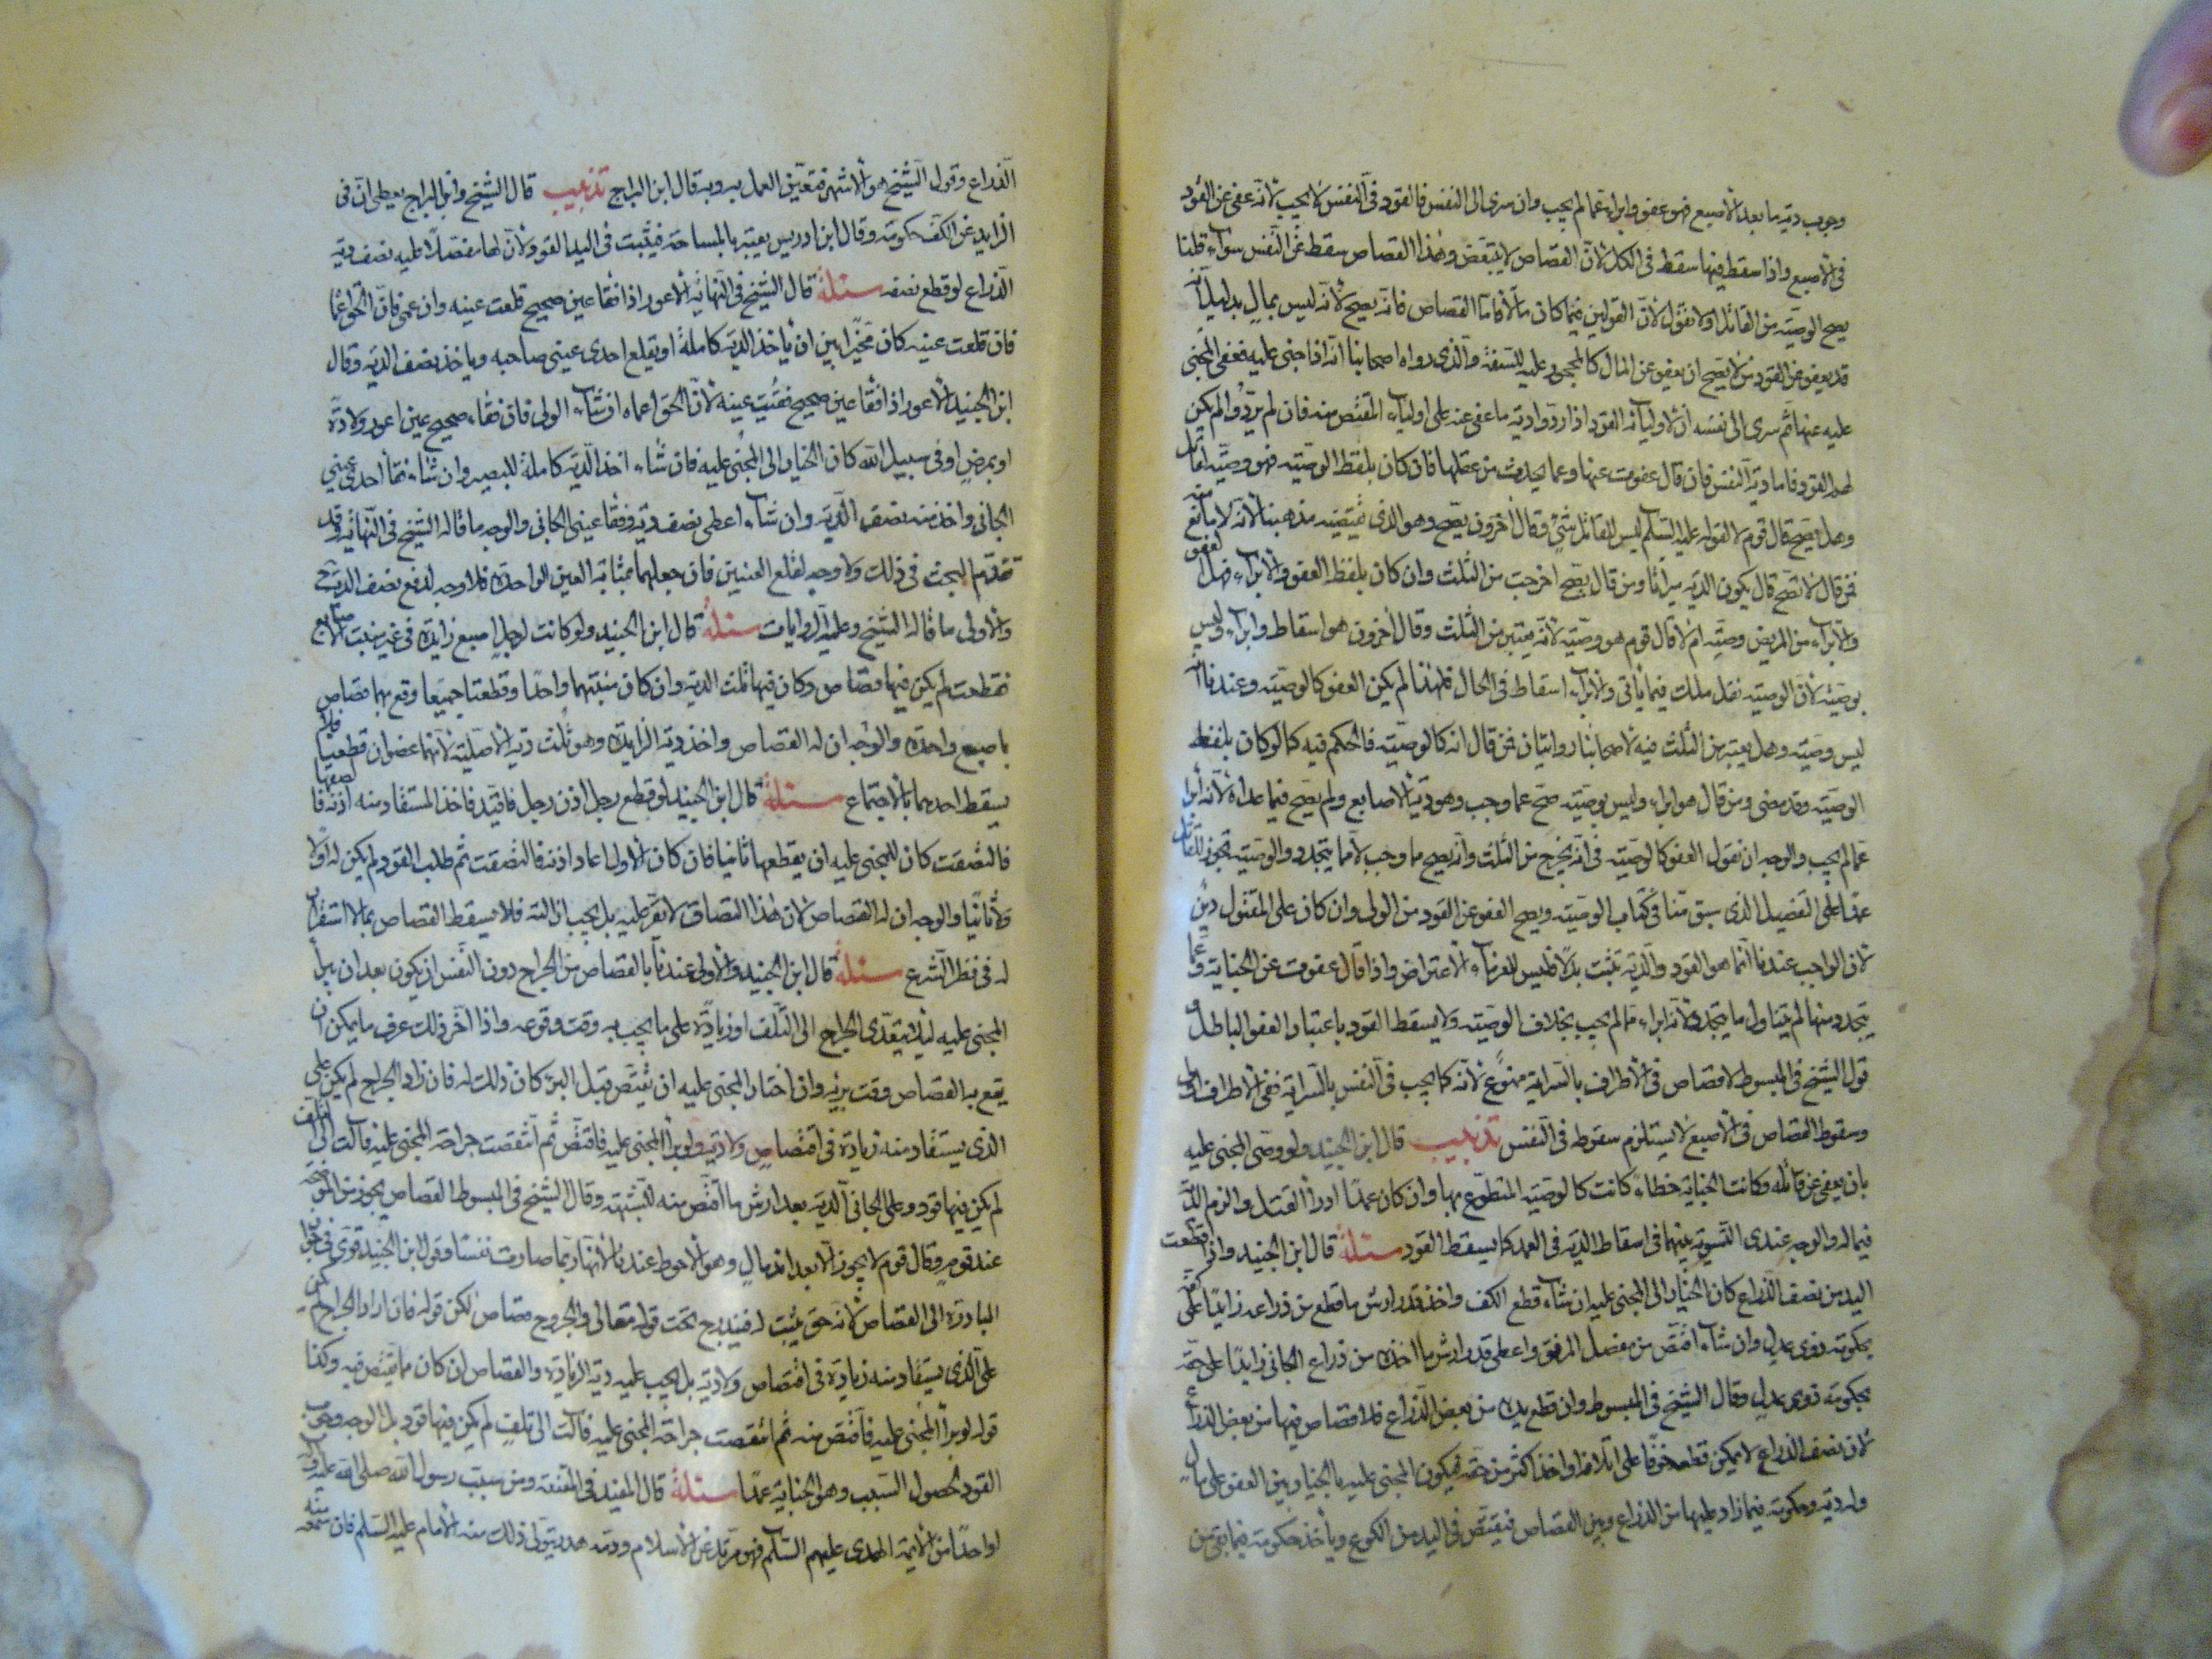 وجوب دية ما بعد الأصبع فهو عفو وابراء عمّا لم يجب وان سرى الى النفس فالقود فى النفس لا يجب لأنّه عفى عن القود
فى الأصبع واذا سقط فيها سقط فى الكل لأنّ القصاص لا يتبعّض وهذا القصاص سقط عن النفس سواء قلنا
يصح الوصيّة من القاتل اولا نقول لأنّ القولين فيما كان مالا فامّا القصاص فانّه يصح لأنّه ليس بمال بدليل انّه
قد يعفو عن القود من لا يصح ان يعفو عن المال كالمحجور عليه للسفه والذى رواه اصحابنا انّه اذا جنى عليه فعفى المجنى
عليه عنها ثم سرى الى نفسه انّ لاوليائه القود اذا ردّوا دية ما عفى عنه على اولياء المقتص منه فان لم يردّوا لم يكن
لهم القود فاما دية النفس فان قال عفوت عنها وعما يحدث من عقلها فان كان بلفظ الوصيّة فهو وصيّة لقاتل
وهل يصح قال قوم لا لقوله عليه السلم ليس لقاتل شئ وقال آخرون يصح وهو الذى يقتضيه مذهبنا لأنّه لا مانع منه
فمن قال لا تصّح قال يكون الدية ميراثا ومن قال يصح اخرجت من الثلث وان كان بلفظ العفو والأبراء فهل العفو
والأبراء من المريض وصيّة ام لا قال قوم هو وصيّة لأنّه يعتبر من الثلث وقال آخرون هو اسقاط وابراء وليس
بوصيّة لأنّ الوصيّة نقل ملك فيما يأتى والأبراء اسقاط فى الحال فلهذا لم يكن العفو كالوصيّة وعندنا انّه
ليس وصيّة وهل يعتبر من الثلث فيه لأصحابنا روايتان فمن قال انه كالوصيّة فالحكم فيه كما لو كان بلفظ
الوصيّة وقد مضى ومن قال هو ابراء وليس بوصيّة صحّ عما وجب وهو دية الأصابع ولم يصح فيما عداه لأنّه ابراء
عمّا لم يجب والوجه ان نقول العفو كالوصيّة فى انّه يخرج من الثلث وانّه يصح ما وجب لا ما يتجدد والوصيّة تجوز للقاتل
عمدا على التفصيل الذى سبق منّا فى كتاب الوصيّة ويصح العفو عن القود من الولى وان كان على المقتول دين
لان الواجب عندنا انّما هو القود والدّية تثبت بدلا فليس للغرماء الاعتراض واذا قال عفوت عن الجناية وعمّا
يتجدد منها لم يتناول ما يتجدد لأنّه ابراء مما لم يجب بخلاف الوصيّة ولا يسقط القود باعتبار العفو الباطل و
قول الشيخ فى المبسوط لا قصاص فى الأطراف بالسراية ممنوع لأنّه كما يجب فى النفس بالسراية ففى الأطراف اولى
وسقوط القصاص فى الأصبع لا يستلزم سقوطه فى النفس تذنيب قال ابن الجنيد ولو وصّى المجنى عليه
بان يعفى عن قاتله وكانت الجناية خطاء كانت كالوصيّة المتطوّع بها وان كان عمدًا ادرأ القتل والزم الدّية
فيما له والوجه عندى التسوية بينهما فى اسقاط الدية فى العمد كما يسقط القود مسئلة قال ابن الجنيد واذا قطعت
اليد من نصف الذراع كان الخيار الى المجنى عليه ان شاء قطع الكف واخذ قدر ارش ما قطع من ذراعه زايدًا على كفّه
بحكومة ذوى عدل وان شاء اقتص من مفصل المرفق واعطى قدر ارش ما اخذه من ذراع الجانى زايدًا على حقّه
بحكومة ذوى عدل وقال الشيخ فى المبسوط وان قطع يده من بعض الذراع فلا قصاص فيها من بعض الذراع
لان نصف الذراع لا يمكن قطعه خوفًا على اتلافه او اخذ اكثر من حقّه فيكون المجنى عليه بالخيار بين العفو على مال
وله دية وحكومة فيما زاد عليها من الذراع وبين القصاص فيقتص فى اليد من الكوع ويأخذ حكومة فيما بقى من
الذراع وقول الشيخ هو الأشهر فتعيّن العمل به وبه قال ابن البراج تذنيب قال الشيخ وابن البراج يعطى انّ فى
الزايد عن الكف حكومة وقال ابن ادريس يعتبر بالمساحة فيثبت فى اليد القود ولأنّ لها مفصلاً عليه نصف دية
الذراع لو قطع نصفه مسئلة قال الشيخ فى النهاية الأعور اذا فقأ عين صحيح قلعت عينه وان عمى فانّ الحقّ اعماه
فان قلعت عينه كان مخيّرا بين ان يأخذ الدية كاملة او يقلع احدى عينى صاحبه ويأخذ نصف الدية وقال
ابن الجنيد الأعور اذا فقأ عين صحيح فقئت عينه لأنّ الحق اعماه ان شاء الولى فان فقاء صحيح عين اعور ولادة
او بمرض او فى سبيل الله كان الخيار الى المجنى عليه فان شاء اخذ الدية كاملة للبصير وان شاء فقأ احدى عينى
الجانى واخذ منه نصف الدية وان شاء اعطى نصف دية وفقأ عينى الجانى والوجه ما قاله الشيخ فى النهاية وقد
تقدّم البحث فى ذلك ولا وجه لقلع العينين فان جعلهما بمثابة العين الواحدة فلا وجه لدفع نصف الدية ح
والأولى ما قاله الشيخ وعليه الروايات مسئلة قال ابن الجنيد ولو كانت لرجل اصبع زايدة فى غير منبت الأصابع
فقطعت لم يكن فيها قصاص وكان فيها ثلث الدية وان كان منبتهما واحدًا وقطعتا جميعا وقع بهما قصاص
باصبع واحدة والوجه ان له القصاص واخذ دية الزايدة وهو ثلث دية الأصليّة لأنّهما عضوان قطعتا فلا
يسقط احدهما بالاجتماع مسئلة قال ابن الجنيد لو قطع رجل اذن رجل فاقيد فاخذ المستقاد منه اذنه فالصقها
فالتصقت كان للمجنى عليه ان يقطعها ثانيا فان كان الأول اعاد اذنه فالتصقت ثم طلب القود لم يكن له اولا
ولا ثانيا والوجه ان له القصاص لان هذا التصاق لا يقرّ عليه بل يجب ازالته فلا يسقط القصاص بما لا استقرار
له فى نظر الشرع مسئلة قال ابن الجنيد والأولى عندنا بالقصاص من الجراح دون النفس ان يكون بعد ان يبرأ
المجنى عليه لئلا يتعدّى الجراح الى التلف او زيادة على ما يجب به وقت وقوعه واذا اخّر ذلك عرف ما يمكن ان
يقع به القصاص وقت برئه وان اختار المجنى عليه ان يقتص قبل البرء كان ذلك له فان زاد الجراح لم يكن على
الذى يستقاد منه زيادة فى اقتصاص ولا دية ولو برأ المجنى عليه فاقتصّ ثم انتقضت جراحة المجنى عليه فآلت الى التلف
لم يكن فيها قود وعلى الجانى الدية بعد ارش ما اقتصّ منه للشبهة وقال الشيخ فى المبسوط القصاص يجوز من الموضحة
عند قوم وقال قوم لا يجوز الا بعد اندمال وهو الأحوط عندنا لأنّها ربّما صارت نفسًا وقول ابن الجنيد قوى فى جواز
المبادرة الى القصاص لأنّه حق يثبت له فيندرج تحت قوله تعالى والجروح قصاص لكن قوله فان زاد الجراح لم يكن
على الذى يستقاد منه زيادة فى اقتصاص ولا دية بل يجب عليه دية الزيادة والقصاص ان كان مما يقتص فيه وكذا
قوله لو برأ المجنى عليه فاقتصّ منه ثم انتقضت جراحة المجنى عليه فآلت الى تلف لم يكن فيها قود بل الوجه وجوب
القود لحصول السبب وهو الجناية عمدًا مسئلة قال المفيد فى المقنعة ومن سبّ رسول الله صلى الله عليه وآله
او احدًا من الأئمة الهدى عليهم السلم فهو مرتد عن الأسلام ودمه هدر يتولى ذلك منه الأمام عليه السلم فان سمعه منه